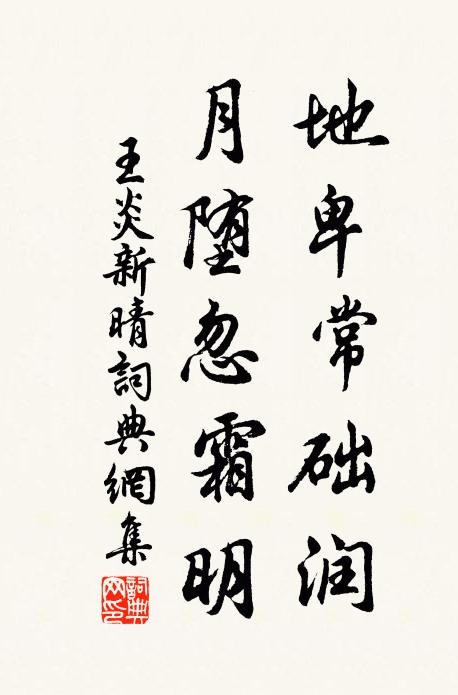 地卑常础润
月堕忽霜明
王炎新晴詞典網集
詞典网印